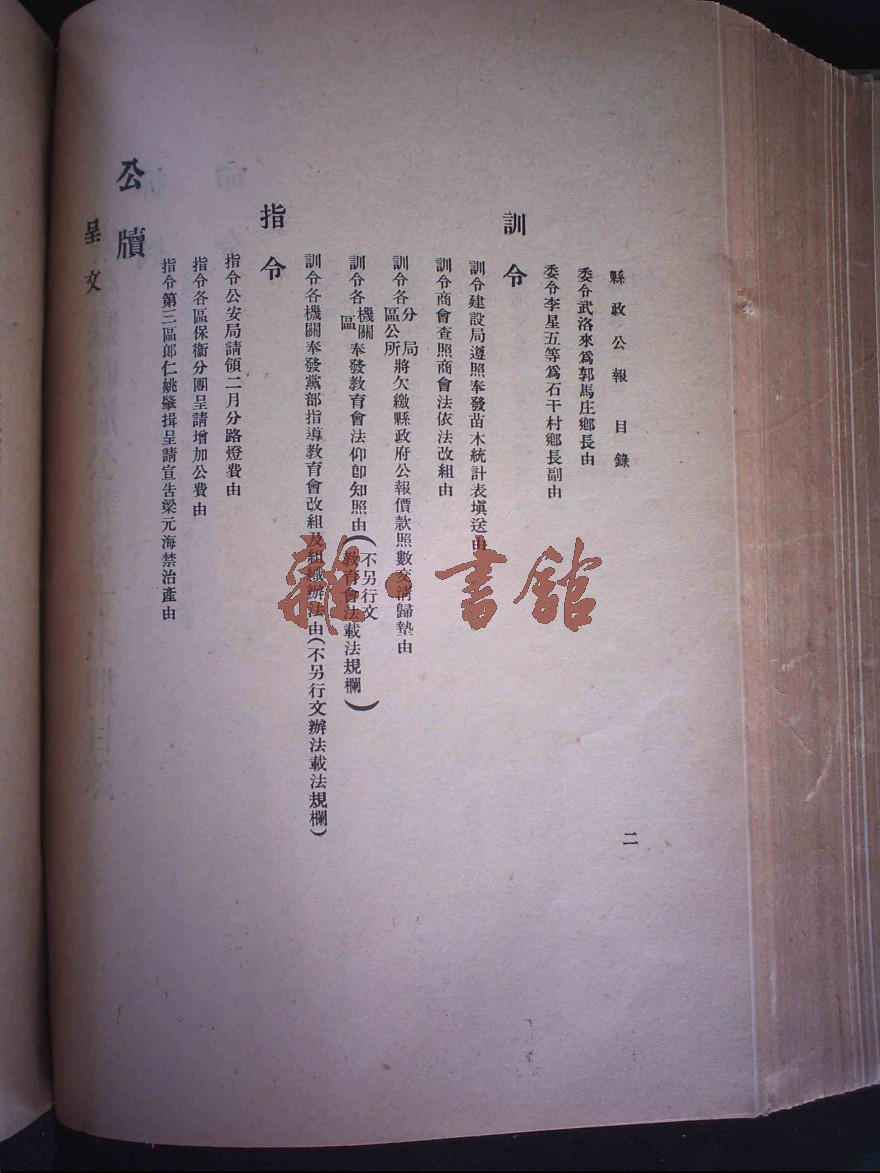 縣政公報 目錄
二
委令武洛來爲郭馬庄鄉長由
委令李星五等爲石干村鄉長副由
訓令
訓令建設局遵照奉發苗木統計表塡送由
訓令商會查照商會法依法改組由
訓令各分局區公所將欠繳縣政府公報價款照數交淸歸墊由
訓令各機關區奉發教育會法仰卽知照由(不另行文教育會法載法規欄)
訓令各機關奉發黨部指導教育會改組及組織辦法由(不另行文辦法載法規欄)
指令
指令公安局請領二月分路燈費由
指令各區保衛分團呈請增加公費由
指令第三區郎仁姚肇揖呈請宣吿梁元海禁治產由
公牘
呈文
雜·書館